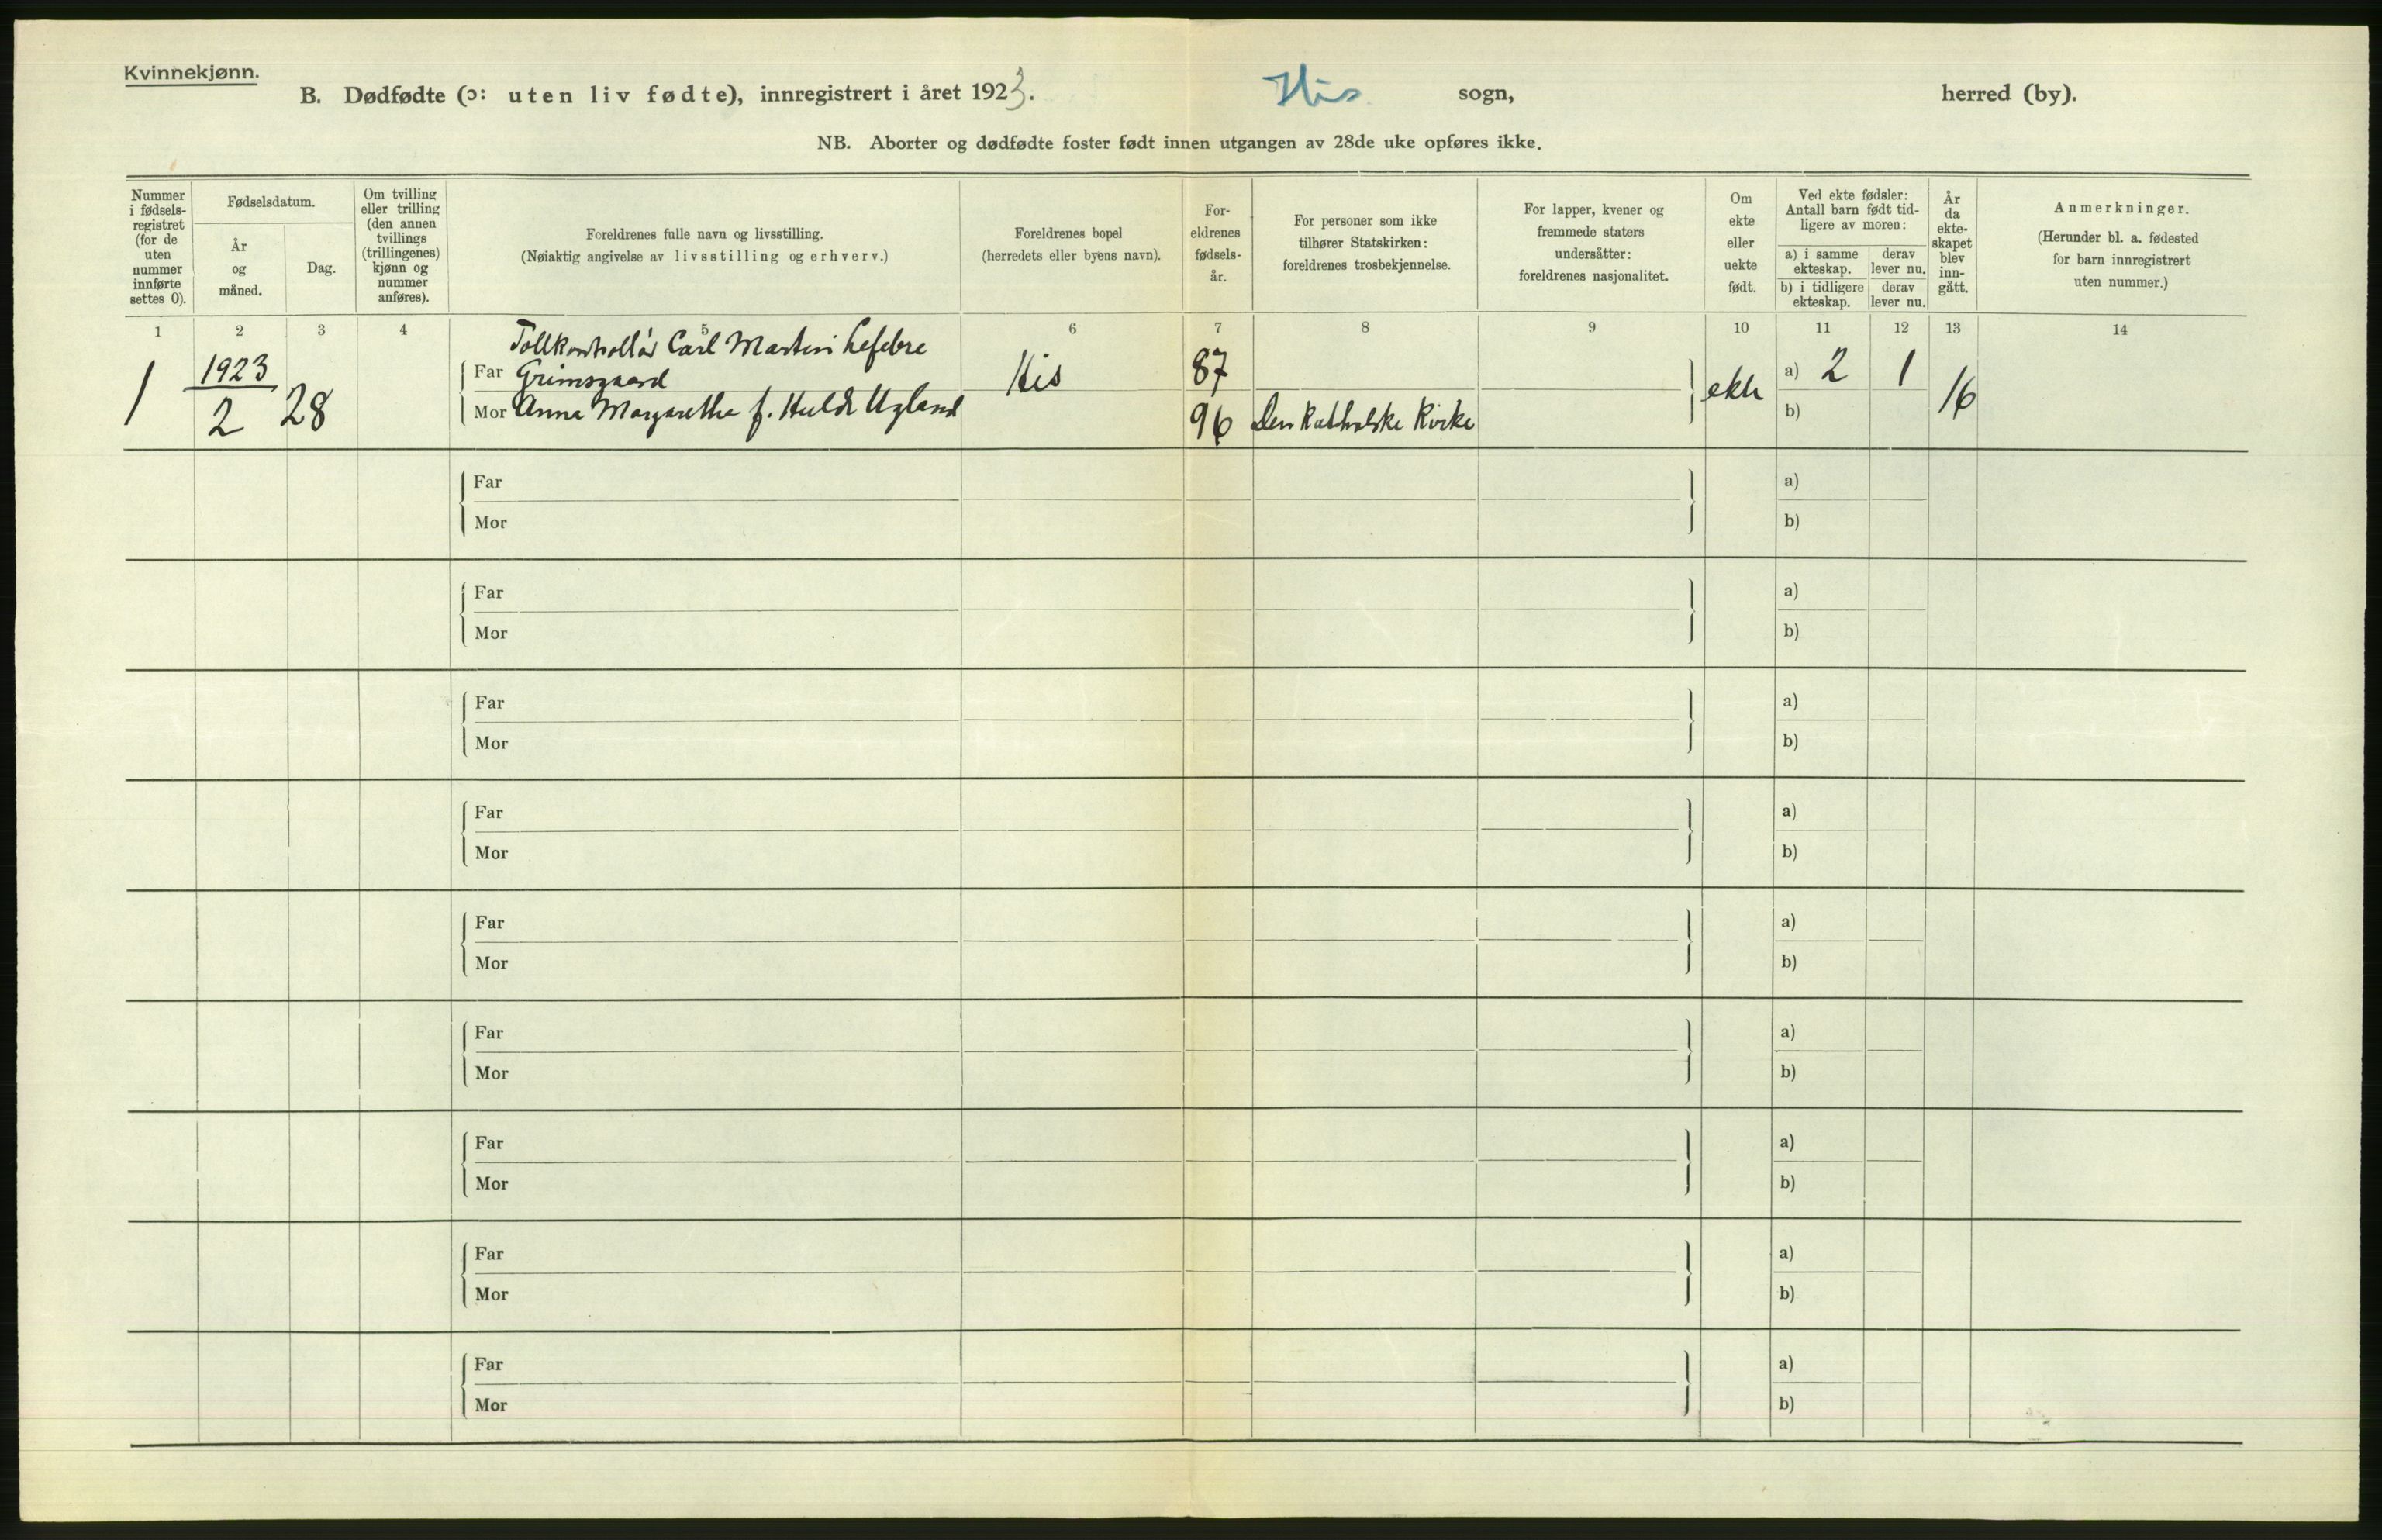 Kvinnekjønn.
B. Dødfødte (ɔ: uten liv fødte), innregistrert i året 1923. His sogn, herred (by).
NB. Aborter og dødfødte foster født innen utgangen av 28de uke opføres ikke.
Nummer i fødsels-registret (for de uten nummer innførte settes 0).
Fødselsdatum.
År og måned.
Dag.
Om tvilling eller trilling (den annen tvillings (trillingenes) kjønn og nummer anføres).
Foreldrenes fulle navn og livsstilling.
(Nøiaktig angivelse av livsstilling og erhverv.)
Foreldrenes bopel
(herredets eller byens navn).
For-eldrenes fødsels-år.
For personer som ikke tilhører Statskirken: foreldrenes trosbekjennelse.
For lapper, kvener og fremmede staters undersåtter: foreldrenes nasjonalitet.
Om ekte eller uekte født.
Ved ekte fødsler: Antall barn født tid-ligere av moren:
a) i samme ekteskap.
derav lever nu.
b) i tidligere ekteskap.
derav lever nu.
År da ekte-skapet blev inn-gått.
Anmerkninger.
(Herunder bl. a. fødested for barn innregistrert uten nummer.)
1 2 3 4 5 6 7 8 9 10 11 12 13 14
Tollkontrollør Carl Martin Lefebre
1 1923 Far Grimsgaard His 87 a) 2 1
2 28 Mor Anna Margaretha f. Huldt Ugland 96 Den katholske Kirke ekte b) 16
Far a)
Mor b)
Far a)
Mor b)
Far a)
Mor b)
Far a)
Mor b)
Far a)
Mor b)
Far a)
Mor b)
Far a)
Mor b)
Far a)
Mor b)
Far a)
Mor b)